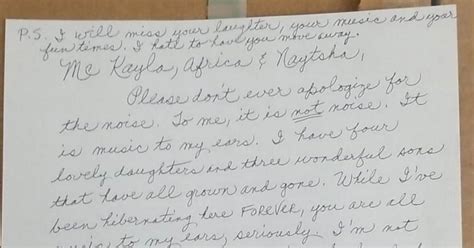 P.S. I will miss your laughter, your music and your
fun times. I hate to have you move away.
Mc Kayla, Africa & Naytsha,
Please don't ever apologize for
the noise. To me, it is not noise. It
is music to my ears. I have four
lovely daughters and three wonderful sons
that have all grown and gone. While I've
been hibernating here FOREVER, you are all
music to my ears, seriously. I'm not